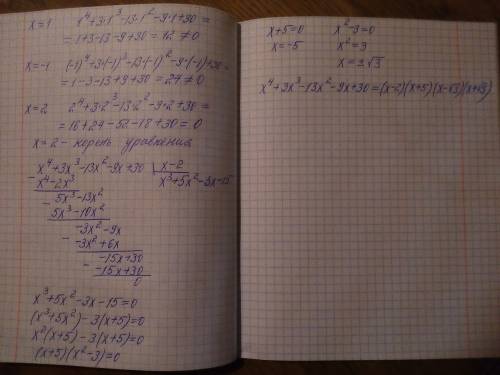 x=1 x⁴+3·1³-13·1²-9·1+30=
=1+3-13-9+30=12≠0
x=-1 (-1)⁴+3·(-1)³-13·(-1)²-9·(-1)+30=
=1-3-13+9+30=24≠0
x=2 2⁴+3·2³-13·2²-9·2+30=
=16+24-52-18+30=0
x=2-корень уравнения
-x⁴+3x³-13x²-9x+30 | x-2
x⁴-2x³ x³+5x²-3x-15
-5x³-13x²
5x³-10x²
-3x²-9x
-
-3x²+6x
-15x+30
-
-15x+30
0
x³+5x²-3x-15=0
(x³+5x²)-3(x+5)=0
x²(x+5)-3(x+5)=0
(x+5)(x²-3)=0
x+5=0 x²-3=0
x=-5 x²=3
x=±√3
x⁴+3x³-13x²-9x+30=(x-2)(x+5)(x-√3)(x+√3)